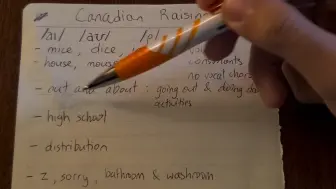 Canadian Raising
/aɪ/ /aʊ/
- mice, dice,
- house,
consonants
no vocal
- out and about : going out & doing
activities
- high school
- distribution
- z, sorry, bathroom & washroom